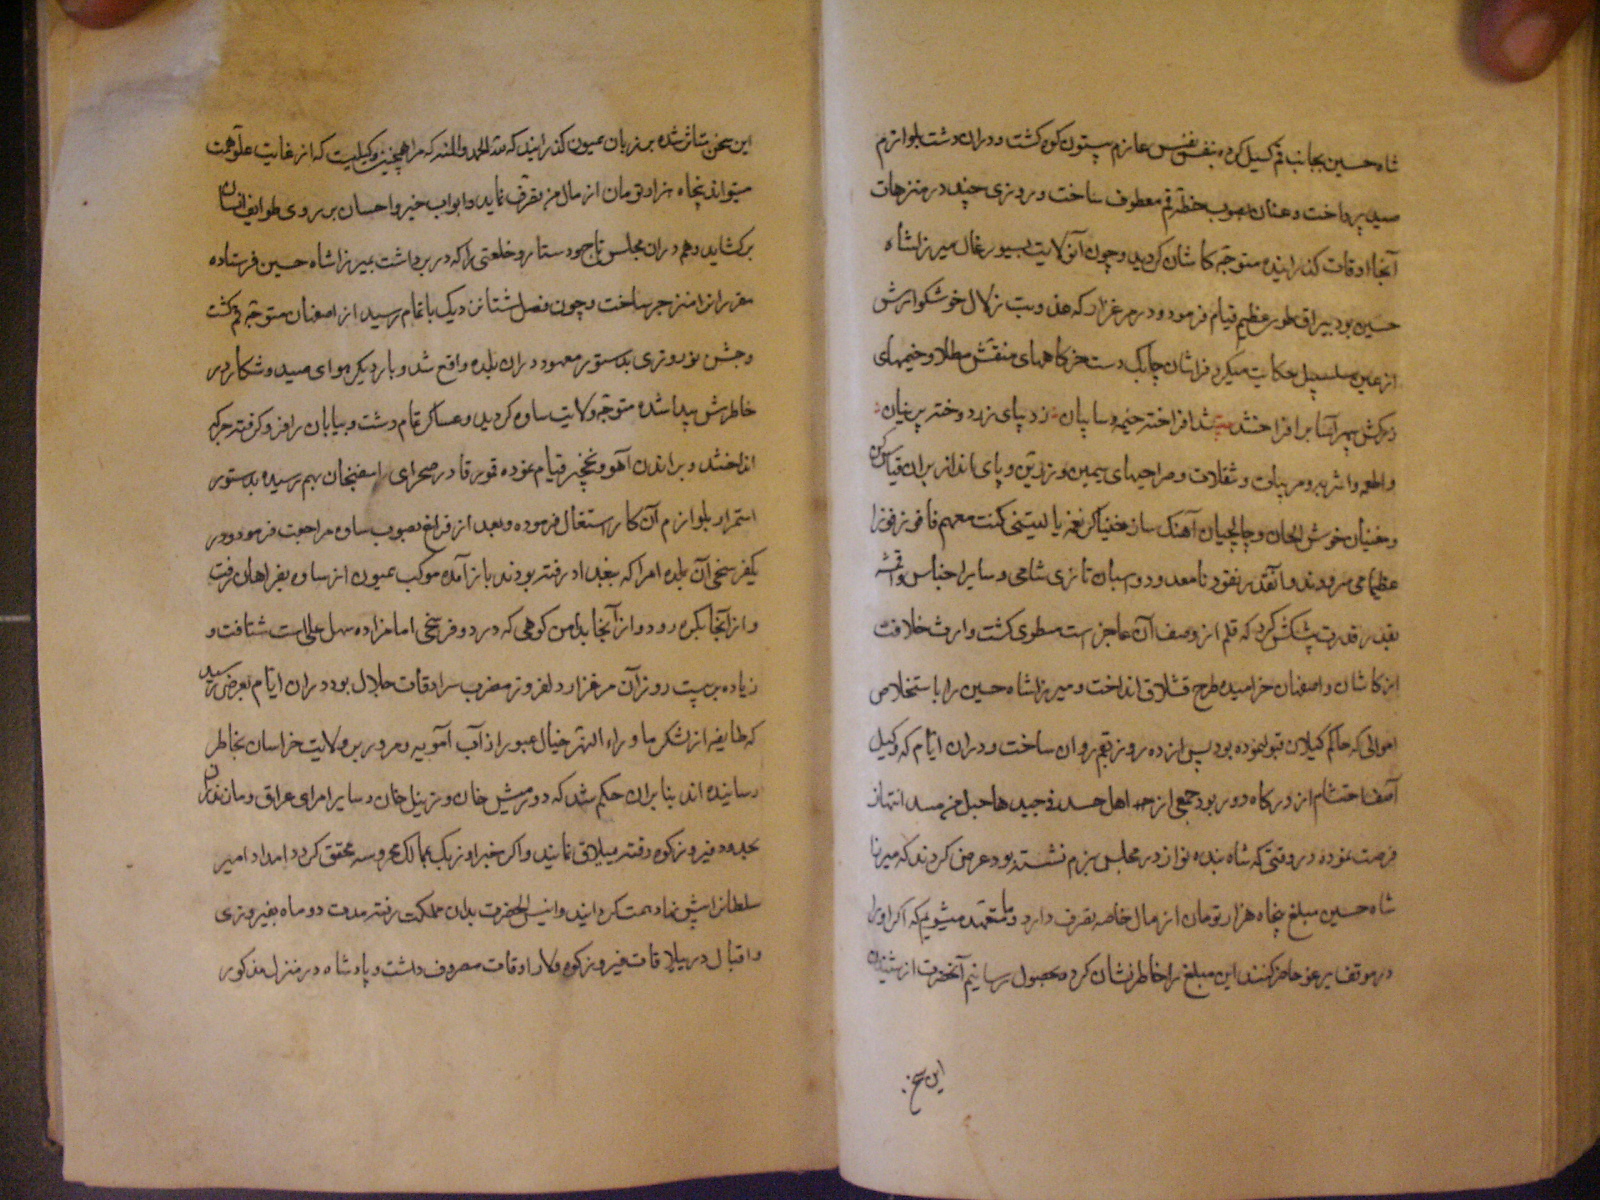 شاه حسین بجانب قم کسیل کرده بنفس نفیس عازم بیستون کوه کشت و دران دشت بلوازم
صید پرداخت و عنان بصوب خطه قم معطوف ساخت و روزی چند در منزهات
آنجا اوقات کذرانیده متوجه کاشان کردید و چون آن ولایت بسیورغال میرزا شاه
حسین بود بیراق طوی عظیم قیام فرمود و در مرغزار که عذوبت زلال خوشکوارش
از عین سلسبیل حکایت میکرد فراشان چابک دست خرکاههای منقش مطلا و خیمهای
زرکش سپهر آسا برافراختند بیت شد افراخته خیمه و سایبان زدیبای زرد و ختر پرنیان
و اطعمه و اشربه و مربیات و تنقلات و صراحیهای سیمین و زرین و پای انداز بران قیاس کن
و مغنیان خوش الحان و چالچیان آهنک ساز غنیاکر نغمه یا لیتنی کنت معهم فافوز فوزا
عظیما می سرودند و آنقدر نقود نامعدود و اسبان تازی شامی و سایر اجناس و اقمشه
بقدر قدرت پیشکش کرد که قلم از وصف آن عاجز است مطوی کشت وارث خلافت
از کاشان و اصفهان خرامیده طرح قشلاق انداخت و میرزا شاه حسین را باستخلاص
اموالی که حاکم کیلان قبول نموده بود پس از ده روز بقم روان ساخت و دران ایام که وکیل
آصف احتشام از درکاه دور بود جمعی از اهل حسد فی جیدها حبل من مسد انتهاز
فرصت نموده در وقتی که شاه بنده نواز در مجلس بزم نشسته بود عرض کردند که میرزا
شاه حسین مبلغ پنجاه هزار تومان از مال خاصه تصرف دارد و ما متعهد میشویم که اکر او را
در موقف یرغو حاضر کنند این مبلغ را خاطرنشان کرده بحصول رسانیم آنحضرت از شنیدن
این سخن
این سخن متاثر شده بر زبان همیون کذرانید که لله الحمد والمنه که مرا همچنین وکیلیست که از غایت علو همت
میتواند پنجاه هزار تومان از مال من تصرف نماید و ابواب خیر و احسان بر روی طوایف انسان
برکشاید و هم دران مجلس تاج و دستار و خلعتی را که در بر داشت بمیرزا شاه حسین فرستاده
مقررانرا منزجر ساخت و چون فصل شتا نزدیک باتمام رسید از اصفهان متوجه قم کشت
و جشن نوروزی بدستور معهود دران بلده واقع شد و بار دیکر هوای صید و شکار در
خاطرش پیدا شده متوجه ولایت ساوه کردید و عساکر تمام دشت و بیابان را فرو کرفته جرکه
انداختند و براندن آهو و نخچیر قیام نموده قورقا در صحرای اسفنجان بهم رسیده بدستور
استمرار بلوازم آن کار اشتغال فرموده و بعد از فراغ بصوب ساوه مراجعت فرمود و در
یکفرسخی آن بلده امرا که ببغداد رفته بودند باز آمده موکب همیون از ساوه بفراهان رفت
و از آنجا بکره رود و از آنجا بدامن کوهی که در دو فرسخی امامزاده سهل علی است شتافت و
زیاده بر بیست روز آن مرغزار دلفروز مضرب سرادقات جلال بود دران ایام بعرض رسید
که طایفه از لشکر ماوراء النهر خیال عبور از آب آمویه و مرور بر ولایت خراسان بخاطر
رسانیده اند بنابران حکم شد که دورمیش خان و زینل خان و سایر امرای عراق و مازندران
بحدود فیروزکوه رفته ییلاق نمایند و اکر خبر اوزبک بممالک محروسه محقق کردد امداد امیر
سلطان را پیش نهاد همت کردانیدند و انیس الحضرت بدان مملکت رفته مدت دو ماه بفیروزی
و اقبال در ییلاقات فیروزکوه و لار اوقات مصروف داشت و پادشاه در منزل مذکور